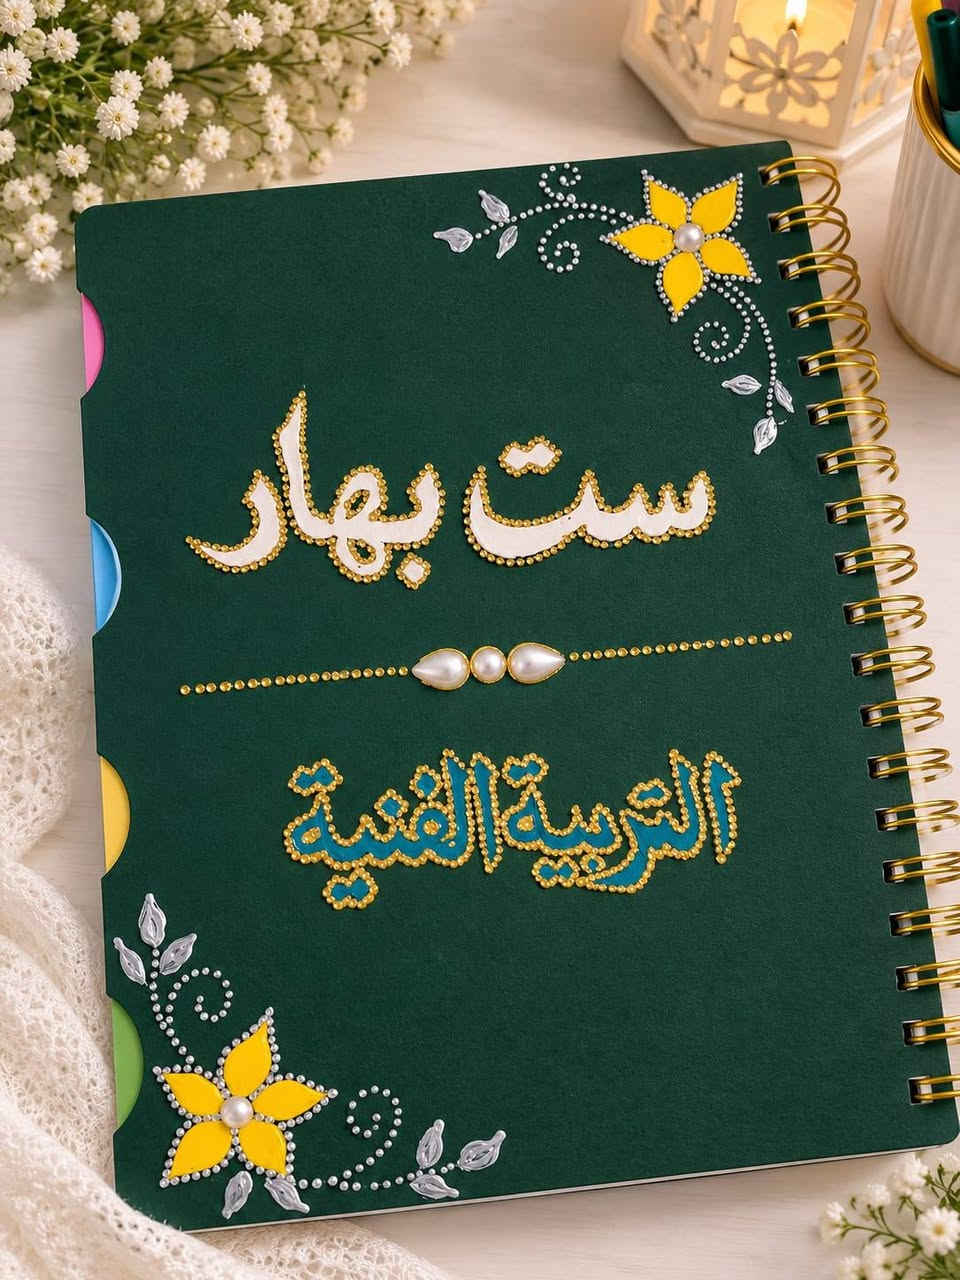 ست بهار
التربية الفنية